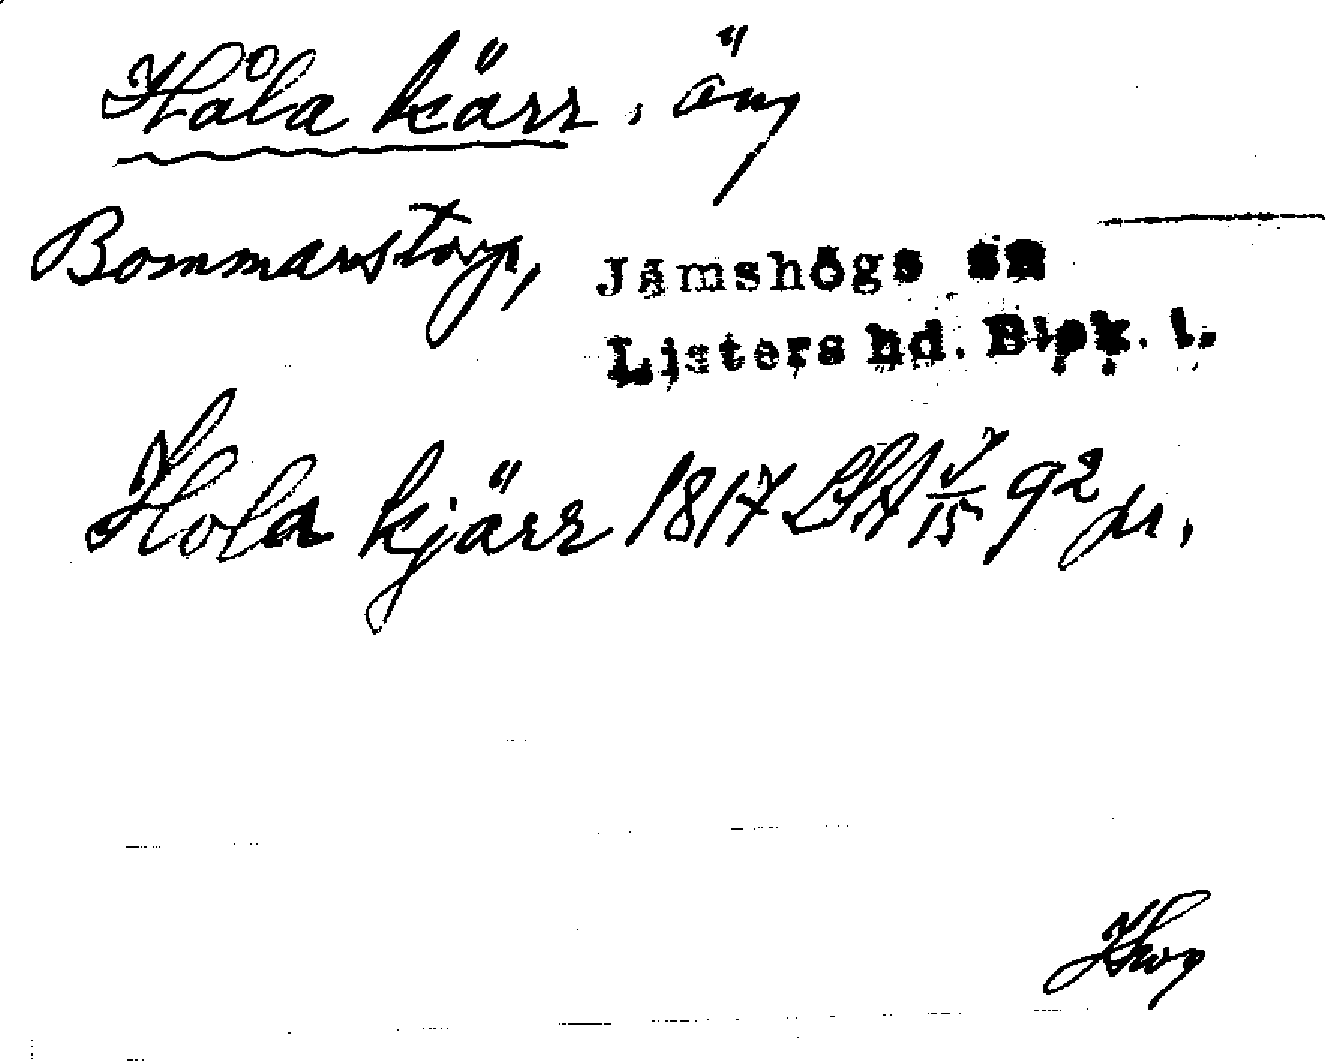 Håla kärr, äng
Bommarstorp, Jämshögs sn
Listers hd. Blek. l.
Hola kjärr 1817 LSA J/15 92 ju.